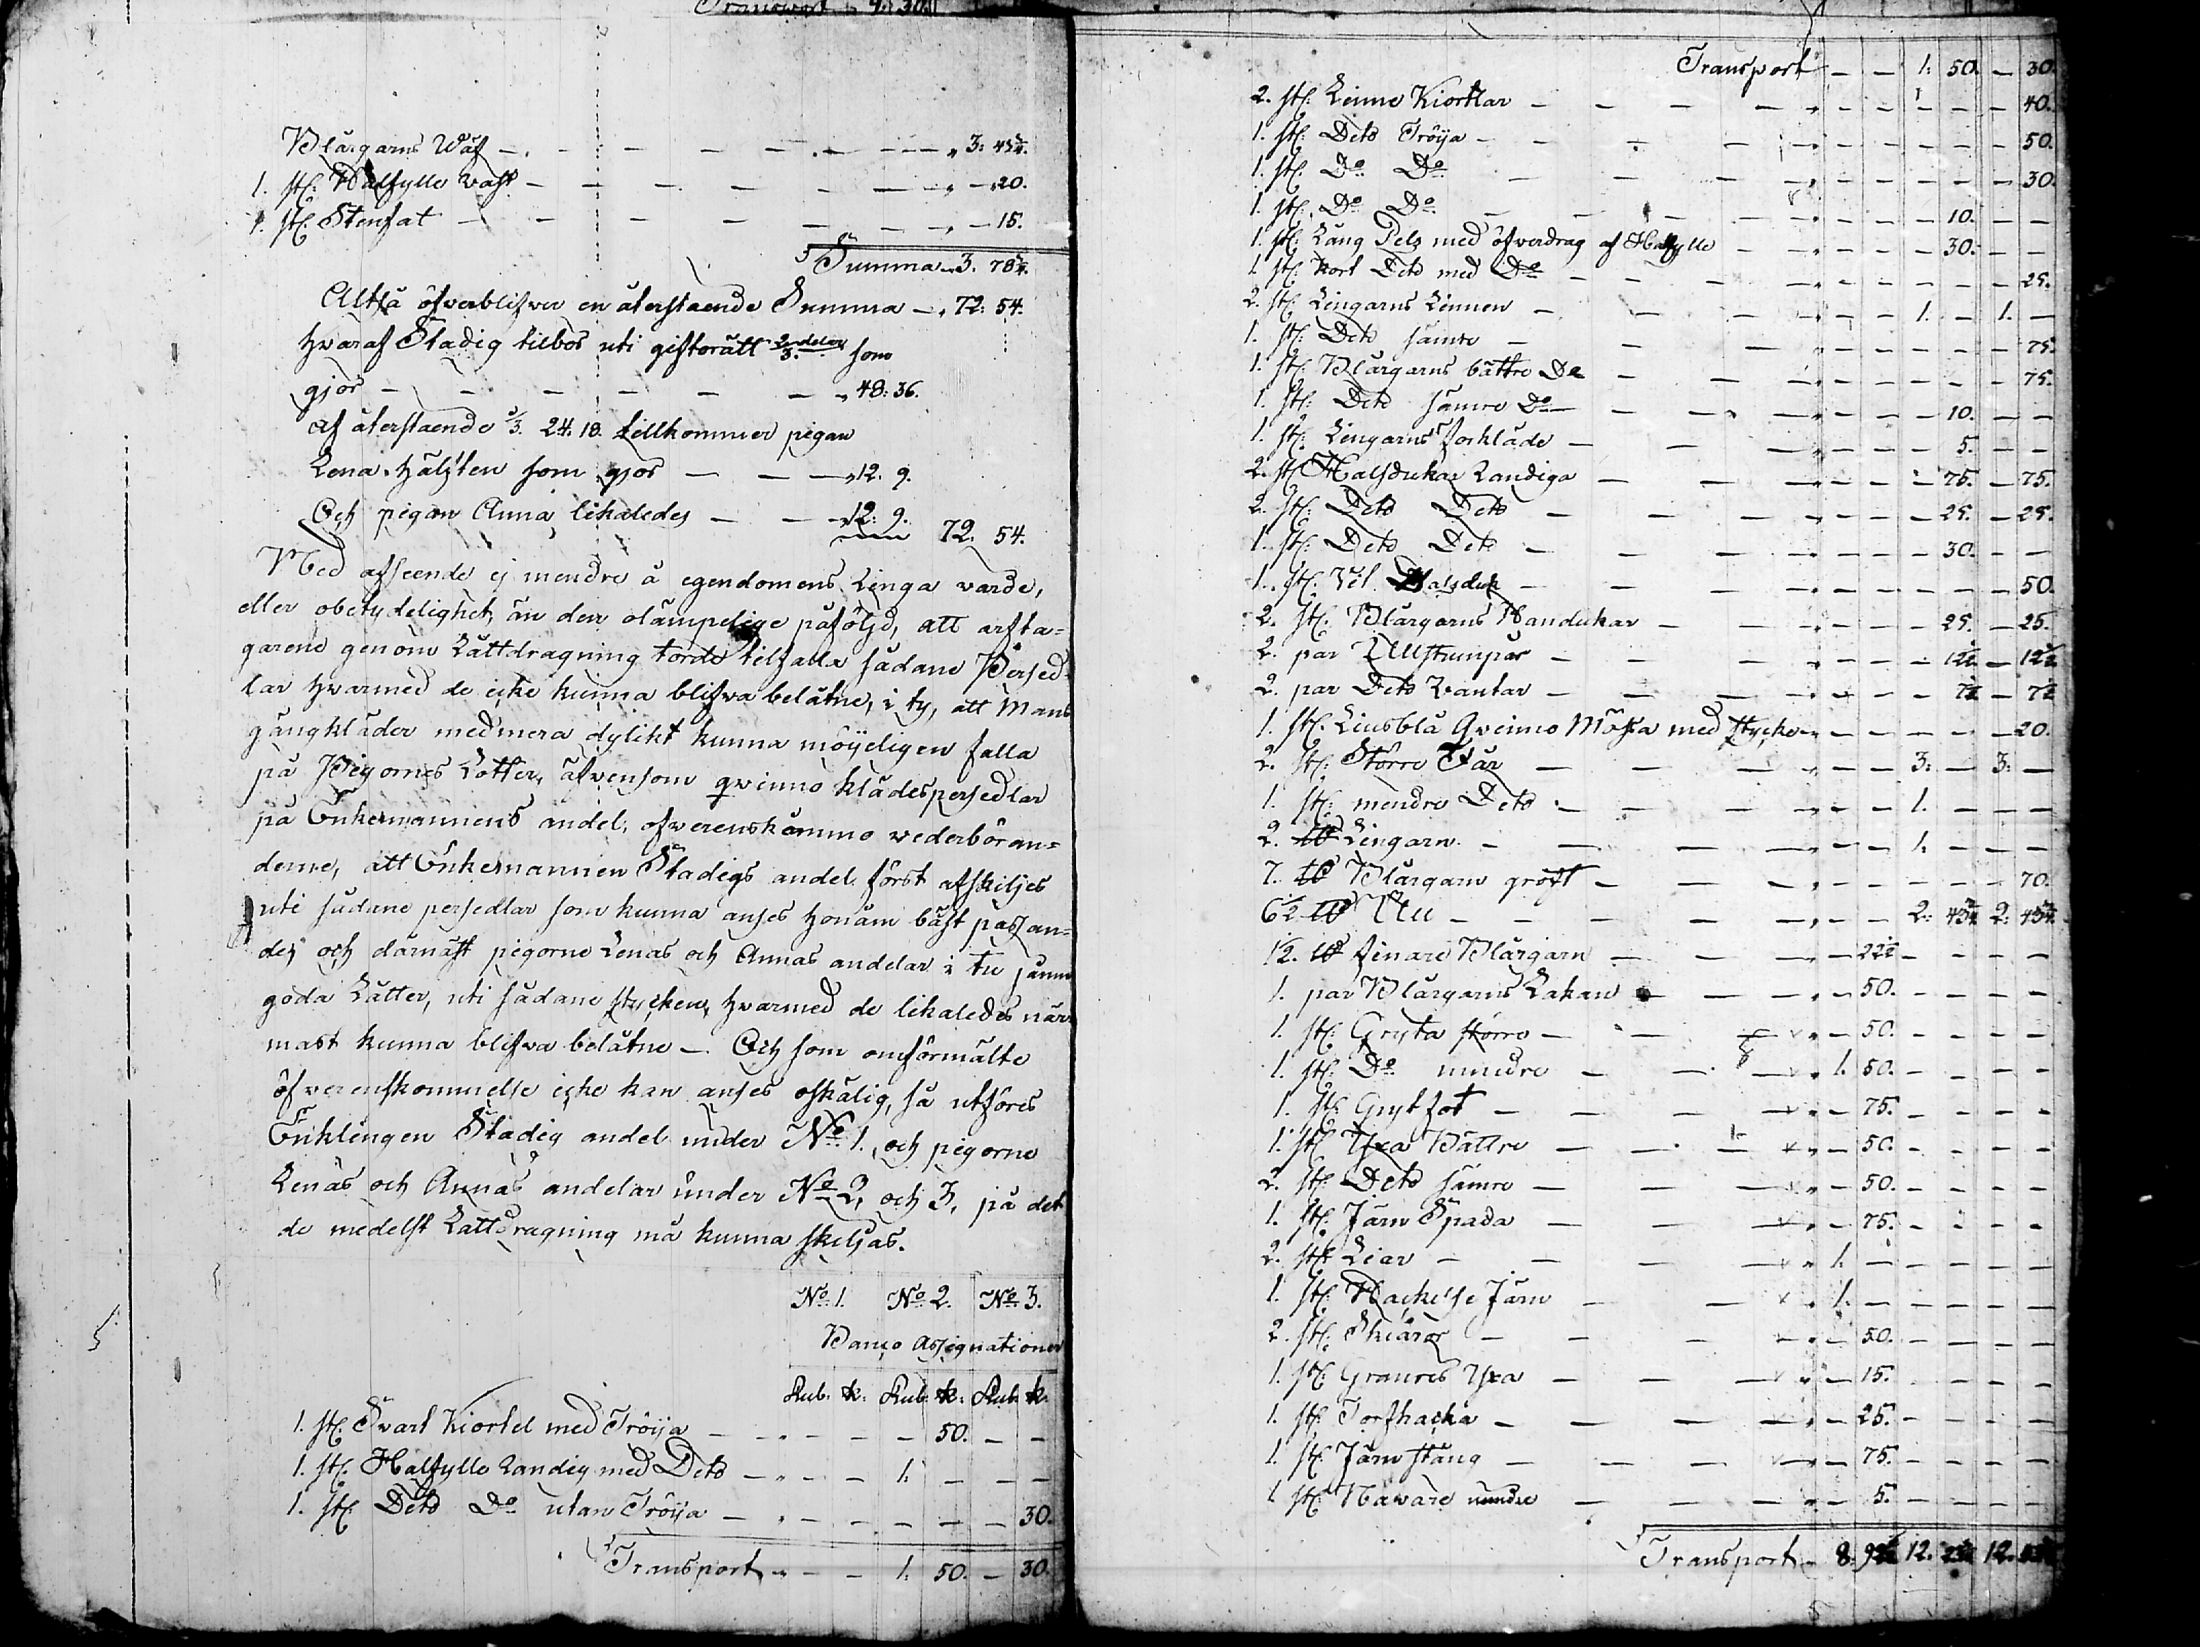 Transport 4: 30.
Blårgarns Wäf — 3: 43¾.
1. st: Halfylle väst — 20.
1. st: Stenfat — 15.
Summa 3. 78¾.
Altså öfverblifver en återstaende Summa — 72: 54.
hvaraf Stadig tilbör uti giftorätt 2/3. delar som
gjör — 48: 36.
af återstaende 1/3. 24. 18. tillkommer pigan
Lena hälften som gjör — 12. 9.
Och pigan Anna likaledes — 12: 9. 72. 54.
Med afseende ej mendre å egendomens ringa värde,
eller obetydelighet, än den olämpelige påföljd, att arfta=
garene genom Lättdragning torde tilfalla sådane Persed=
lar hvarmed de icke kunna blifva belåtne, i ty, att Mans
gångkläder medmera dylikt kunna möyeligen falla
på Pigornes Lotter, äfvensom qvinno klädespersedlar
på Enkemannens andel, öfverenskommo vederböran=
derne, att Enkemannen Stadigs andel först afskiljes
uti sådane persedlar som kunna anses honom bäst passan=
de, och därnäst pigorne Lenas och Annas andelar i tu jämn
goda Låtter, uti sådane stycken, hvarmed de likaledes när
mast kunna blifva belåtne — Och som omförmälte
öfverenskommelse icke kan anses oskälig, så utföres
Enklingen Stadig andel under No 1, och pigorne
Lenas och Annas andelar under No 2, och 3, på det
de medelst Lattdragning må kunna skiljas.
No 1. No 2. No 3.
Banco Assignationer
Rub. k: Rub: k: Rub: k:
1. st: Svart Kiortel med Tröija — 50. —
1. st: Halfylle Randig med Deto — 1. —
1. st: Deto Do utan Tröija — 30.
Transport — 1: 50. — 30.
Transport — 1: 50. — 30.
2. st: Linne Kiortlar — 40.
1. st: Deto Tröija — 50.
1. st: Do Do — 30.
1. st: Do Do — 10. —
1. st: Lång Pels med öfverdrag af Halfylle — 30. —
1. st: Kort Deto med Do — 25.
2. st: Lingarns Linnen — 1. — 1. —
1. st: Deto sämre — 75.
1. st: Blårgarns bättre Do — 75.
1. st: Deto sämre Do — 10. —
1. st: Lingarns förkläde — 5. —
2. st: Halsdukar Randiga — 75. — 75.
2. st: Deto Deto — 25. — 25.
1. st: Deto Deto — 30. —
1. st: Halsduk — 50.
2. st: Blårgarns Handukar — 25. — 25.
2. par Ullstrumpor — 12½ — 12½
2. par Deto Vantar — 7½ — 7½
1. st: Liusblå Qvinno Mössa med stycke — 20.
2. st: Större Får — 3: — 3: —
1. st: mendre Deto — 1. —
2. ℔ Lingarn — 1. —
7. ℔ Blårgarn gröft — 70.
6½ ℔ Ull — 2: 43¾ 2: 43¾
1½. ℔ finare Blårgarn — 22½ —
1. par Blårgarns Lakan — 50. —
1. st: Gryta större — 50. —
1. st: Do mindre — 1. 50. —
1. st: Grytfot — 75. —
1. st: Yxa Bättre — 50. —
2. st: Deto sämre — 50. —
1. st: Järn Spada — 75. —
2. st: Liar — 1. —
1. st: Hackelse Järn — 1. —
2. st: Skiäror — 50. —
1. st: Granris Yxa — 15. —
1. st: Torfhacka — 25. —
1. st: Järnstång — 75. —
1. st: Navare mendre — 5. —
Transport — 8: 92½ 12. 12.